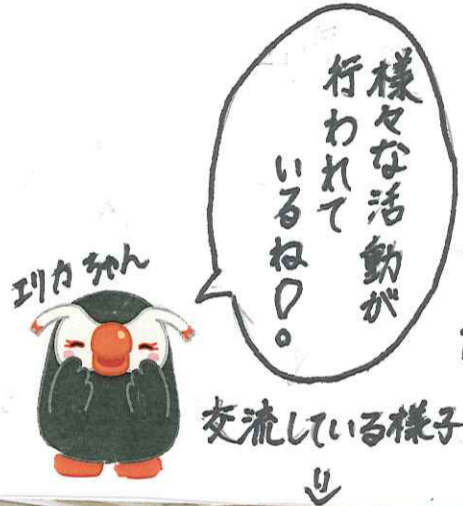 様々な活動が
行われて
いるね♡。
エリカちゃん
交流している様子
⇓